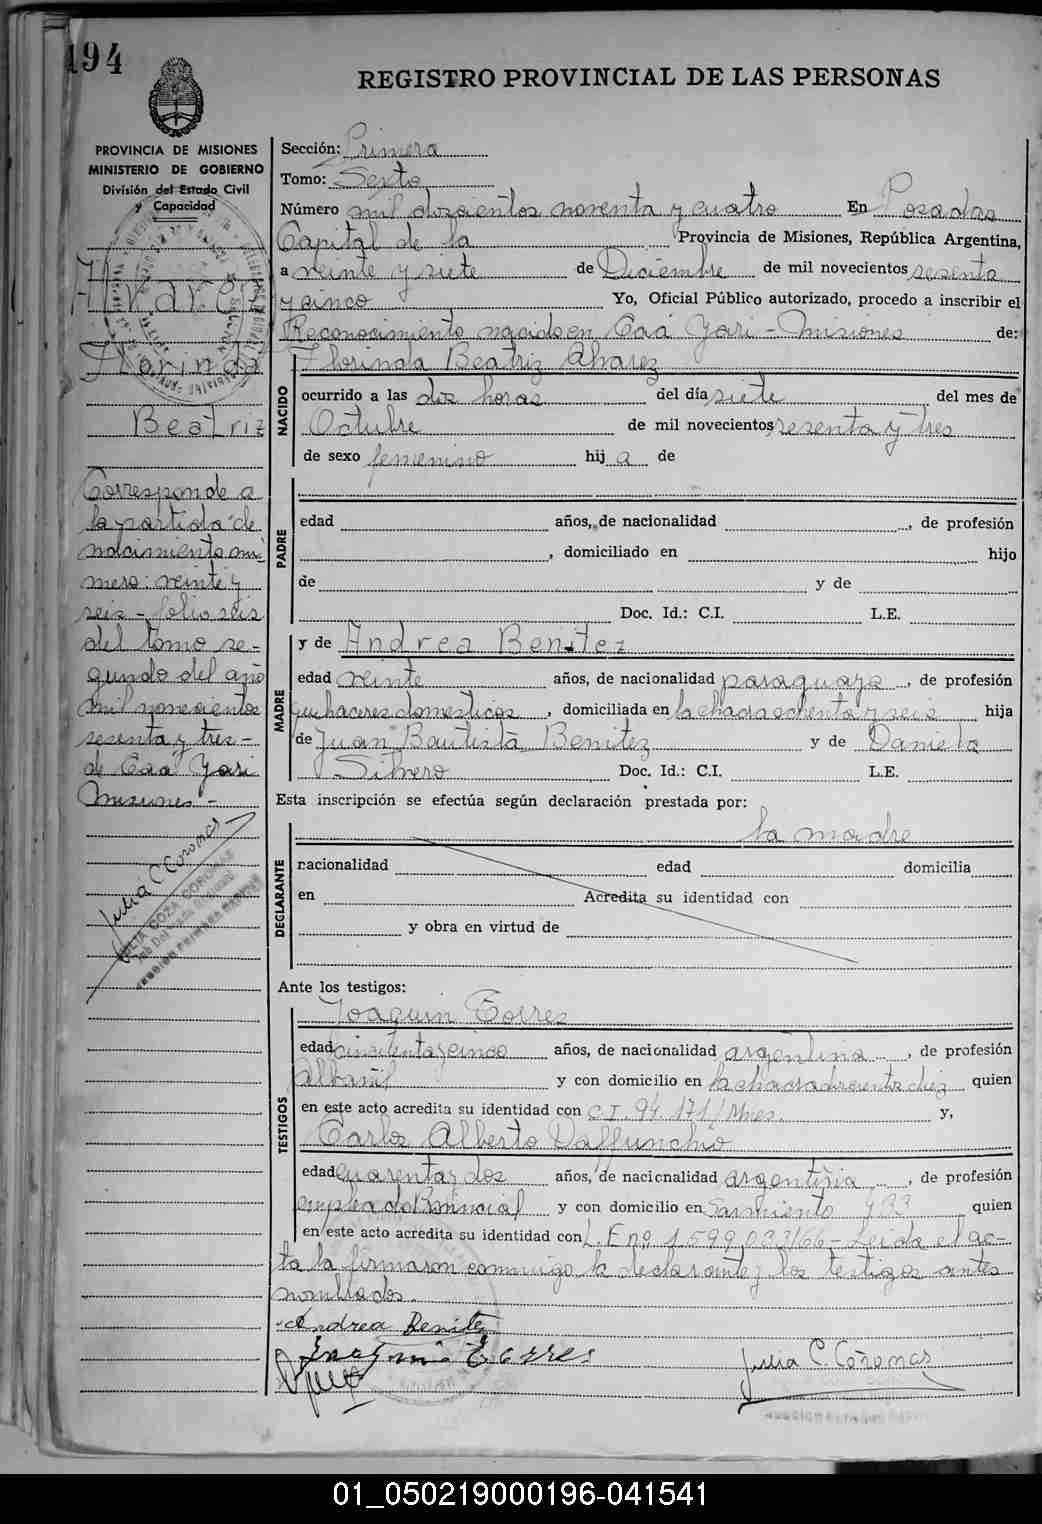 194
REGISTRO PROVINCIAL DE LAS PERSONAS
PROVINCIA DE MISIONES
MINISTERIO DE GOBIERNO
División del Estado Civil
y Capacidad
Alvarez
Florinda
Beatriz
Corresponde a
la partida de
nacimiento nú-
mero: veinte y
seis - folio seis
del tomo se-
gundo del año
mil novecientos
sesenta y tres -
de Caá Yari
Misiones -
Julia C Coronas
JULIA COZA CORONAS
SECCION PRIMERA
Sección: Primera
Tomo: Sexto
Número mil doscientos noventa y cuatro En Posadas
Capital de la Provincia de Misiones, República Argentina,
a veinte y siete de Diciembre de mil novecientos sesenta
y cinco Yo, Oficial Público autorizado, procedo a inscribir el
Reconocimiento nacido en Caá Yari - Misiones de:
Florinda Beatriz Alvarez
NACIDO
ocurrido a las dos horas del día siete del mes de
Octubre de mil novecientos sesenta y tres
de sexo femenino hij a de
PADRE
edad años, de nacionalidad , de profesión
, domiciliado en hijo
de y de
Doc. Id.: C.I. L.E.
y de Andrea Benitez
MADRE
edad veinte años, de nacionalidad paraguaya , de profesión
quehaceres domesticos , domiciliada en la chacra ochenta y seis hija
de Juan Bautista Benitez y de Daniela
Silvero Doc. Id.: C.I. L.E.
Esta inscripción se efectúa según declaración prestada por:
la madre
DECLARANTE
nacionalidad edad domicilia
en Acredita su identidad con
y obra en virtud de
Ante los testigos:
Joaquin Torres
TESTIGOS
edad cincuenta y cinco años, de nacionalidad argentina , de profesión
albañil y con domicilio en la chacra doscientos diez quien
en este acto acredita su identidad con C.I. 94.171/Mnes. y,
Carlos Alberto Daffunchio
edad cuarenta y dos años, de nacionalidad argentina , de profesión
empleado Provincial y con domicilio en Sarmiento 433 quien
en este acto acredita su identidad con L.E nº 1.599.033/66 - Leida el ac-
ta la firmaron conmigo la declarante y los testigos antes
nombrados.
Andrea Benitez
Joaquin Torres
Julia C. Coronas
01_050219000196-041541